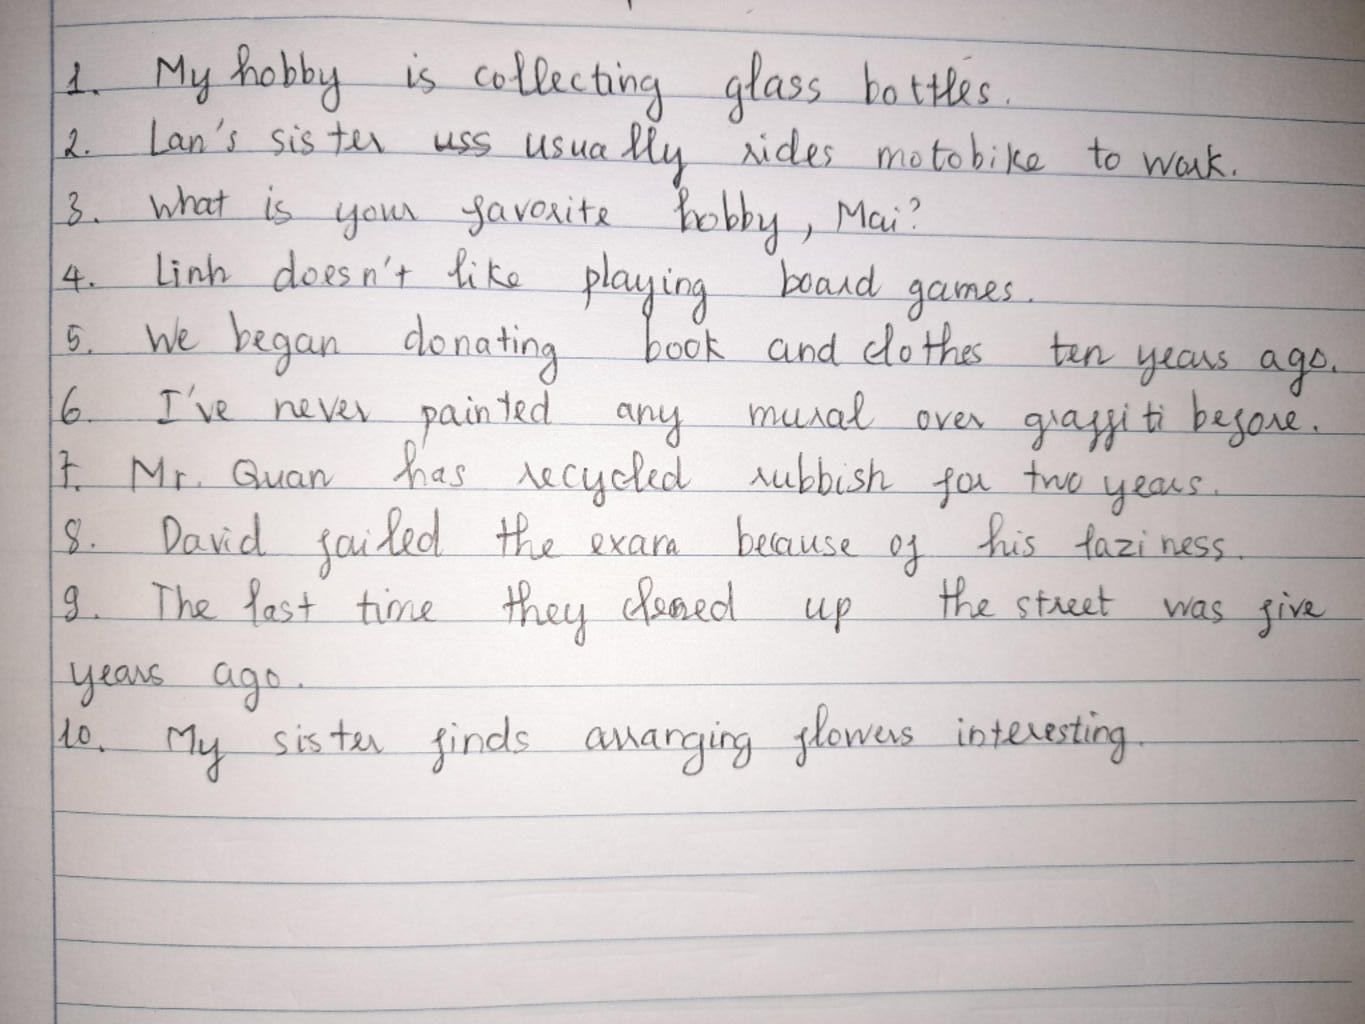 1. My hobby is collecting glass bottles.
2. Lan's sister uss usually rides motobike to work.
3. What is your favorite hobby, Mai?
4. Linh doesn't like playing board games.
5. We began donating book and clothes ten years ago.
6. I've never painted any mural over graffiti before.
7. Mr. Quan has recycled rubbish for two years.
8. David failed the exam because of his laziness.
9. The last time they cleaned up the street was five
years ago.
10. My sister finds arranging flowers interesting.